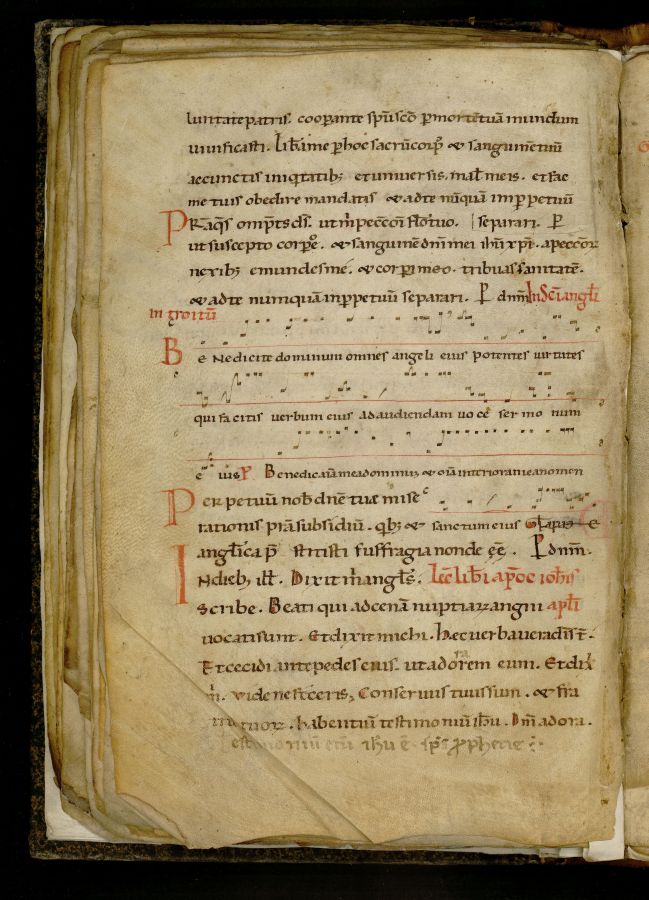 luntate patris. cooperante sp̄u sc̄o p̄ mortē tuā mundum
uiuificasti. lib̄a me p̄ hoc sacrū corp̄ & sanguinē tuū
a cunctis iniq̇tatib; et uniuersis malis meis. et fac
me tuis obedire mandatis & a te nūquā in p̄petuū
P̄ aq̄s omp̄ts d̄s. ut separari. P̄
ut suscepto corp̄e. & sanguine dn̄i mei ih̄u xp̄i. a peccatoꝝ
nexib; emundes me. & corpori meo. tribuas sanitatē.
& a te numquā in p̄petuū separari. P̄ dn̄m In Sc̄i angl̄i
in troitū
Be nedicite dominum omnes angeli eius potentes uirtutes
qui facitis uerbum eius ad audiendam uocē sermonum
eius P̄ Benedic aīa mea domino; & om̄a interiora mea nomen
Perpetuū nob̄ dn̄e tuę mise
rationis pr̄a subsidiū. qb; & sanctum eius
anglica p̄ stitisti suffragia non deēē. P̄ dn̄m.
In dieb; ill̄. Dixit m̄ angl̄s. Lēc lib̄i apoc ioh̄is
Scribe. Beati qui ad cenā nuptiaꝝ agni apl̄i
uocati sunt. Et dixit michi. Hec uerba uera dī st̄.
Et cecidi ante pedes eius. ut adorem eum. Et dix̄
m̄. uide ne feceris, Conseruus tuus sum. & fra
tuoꝝ. habentiū testimoniū ih̄u. Dm̄ adora.
testimoniū ih̄u ē sp̄s p̄phetie